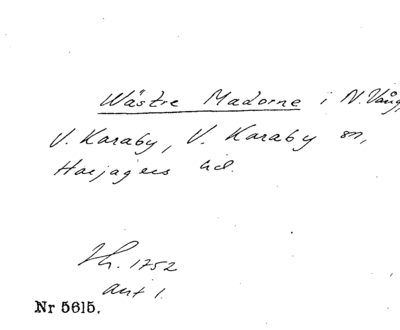 Wästre Madorne i N. Vång,
V. Karaby, V. Karaby sn,
Harjagers hd.
1752
akt 1.
Nr 5615.